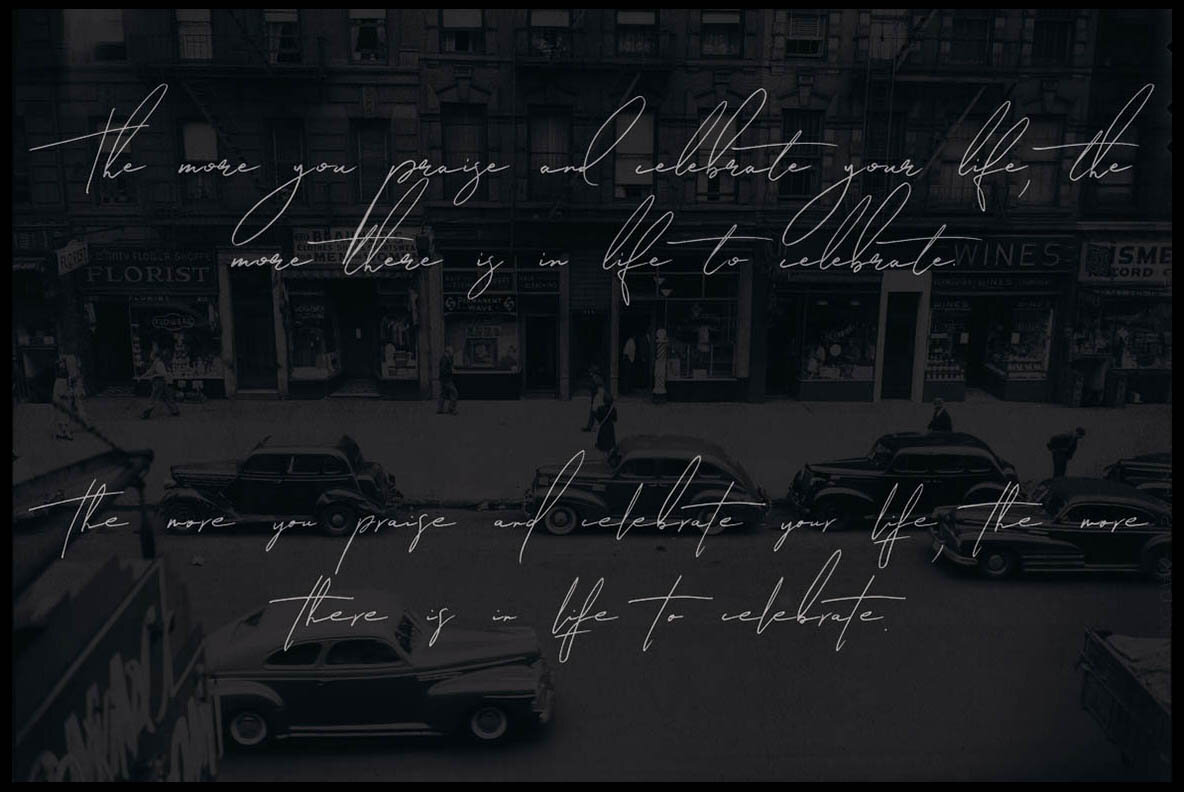 The more you praise and celebrate your life, the
more there is in life to celebrate.
FLORIST
FLORIST
WINES
PERMANENT
WAVE
WINES
WINES
The more you praise and celebrate your life, the more
there is in life to celebrate.